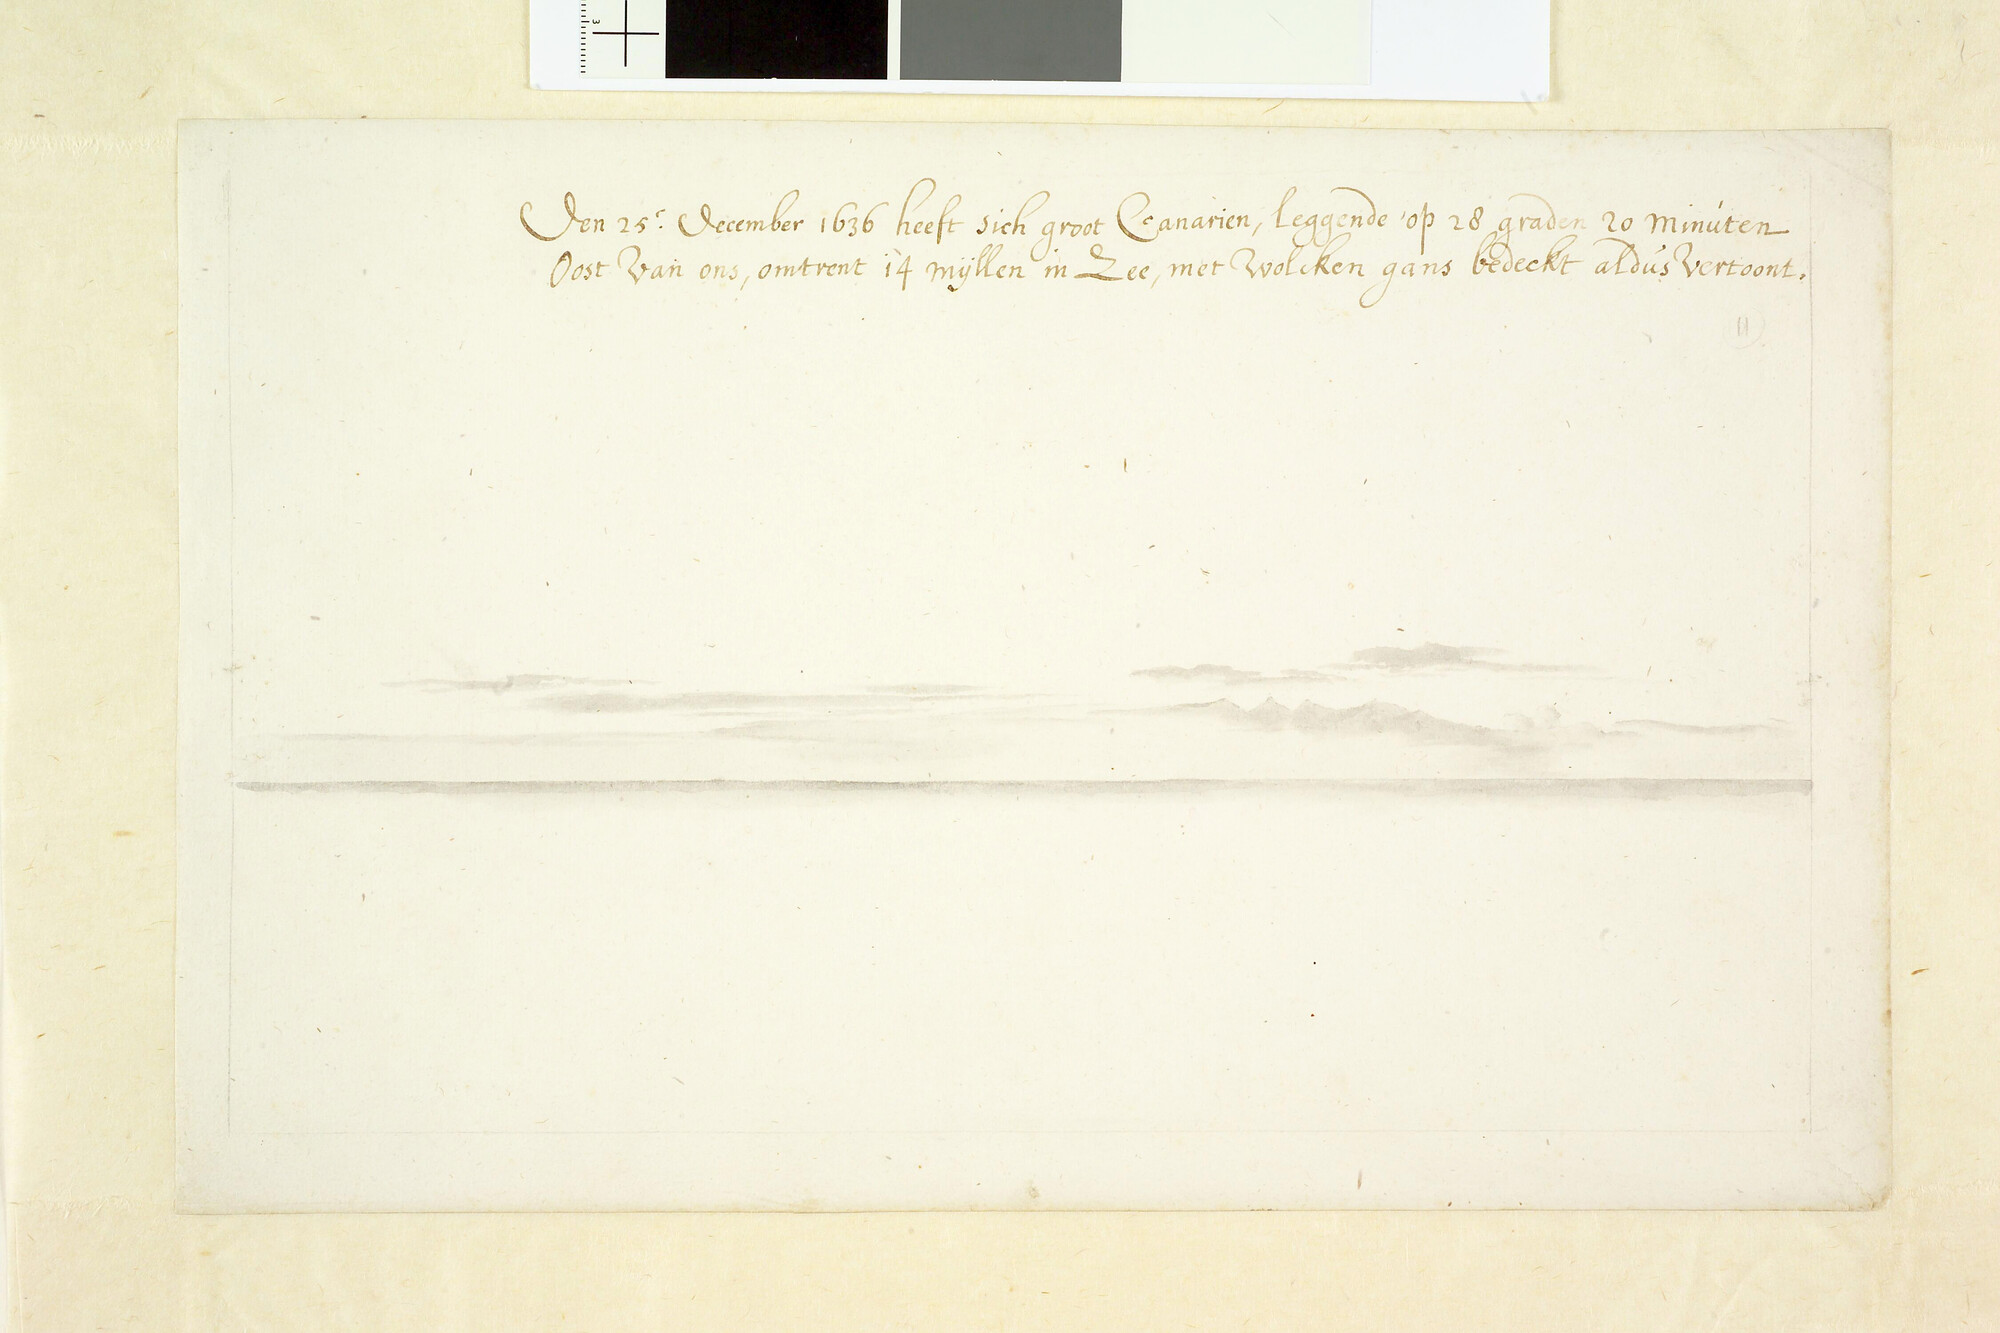 3
Den 25.ͨ December 1636 heeft sich groot Canarien, leggende op 28 graden 20 minúten
Oost Van ons, omtrent 14 mÿllen in Zee, met Wolcken gans bedeckt aldús Vertoont.
11